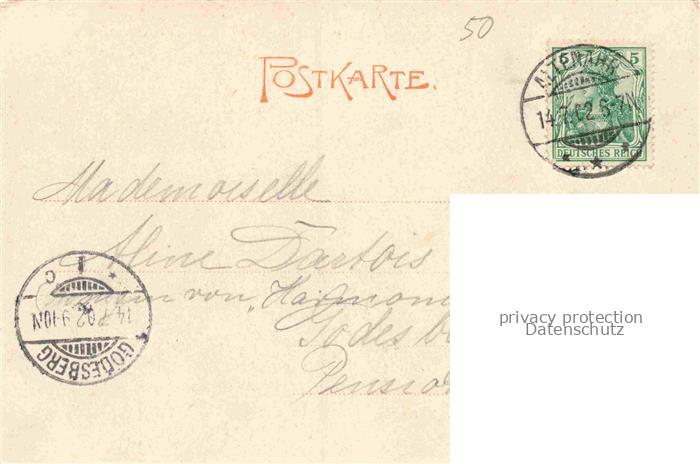 50
POSTKARTE.
5
ALTENAHR
14.7.02 6-7N
DEUTSCHES REICH
Mademoiselle
Aline Dartois
von "Harmon
Godesb
Pensio
C
14.7.02.9-10N
GODESBERG
privacy protection
Datenschutz